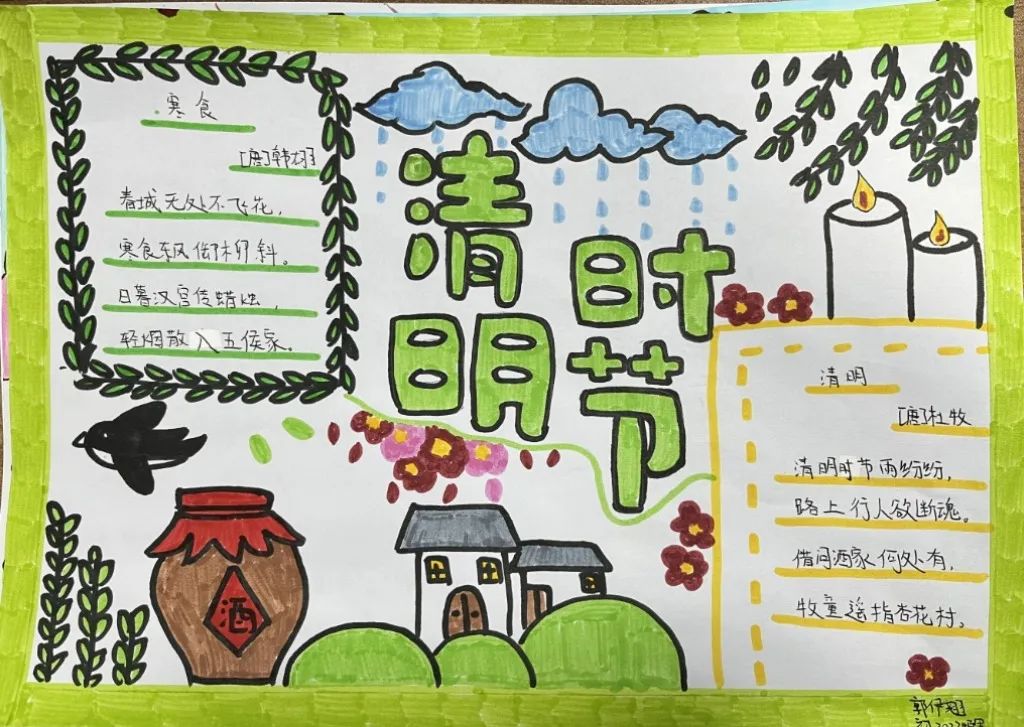 寒食
[唐]韩翃
春城无处不飞花，
寒食东风御柳斜。
日暮汉宫传蜡烛，
轻烟散入五侯家。
清明
时节
清明
[唐]杜牧
清明时节雨纷纷，
路上行人欲断魂。
借问酒家何处有，
牧童遥指杏花村。
酒